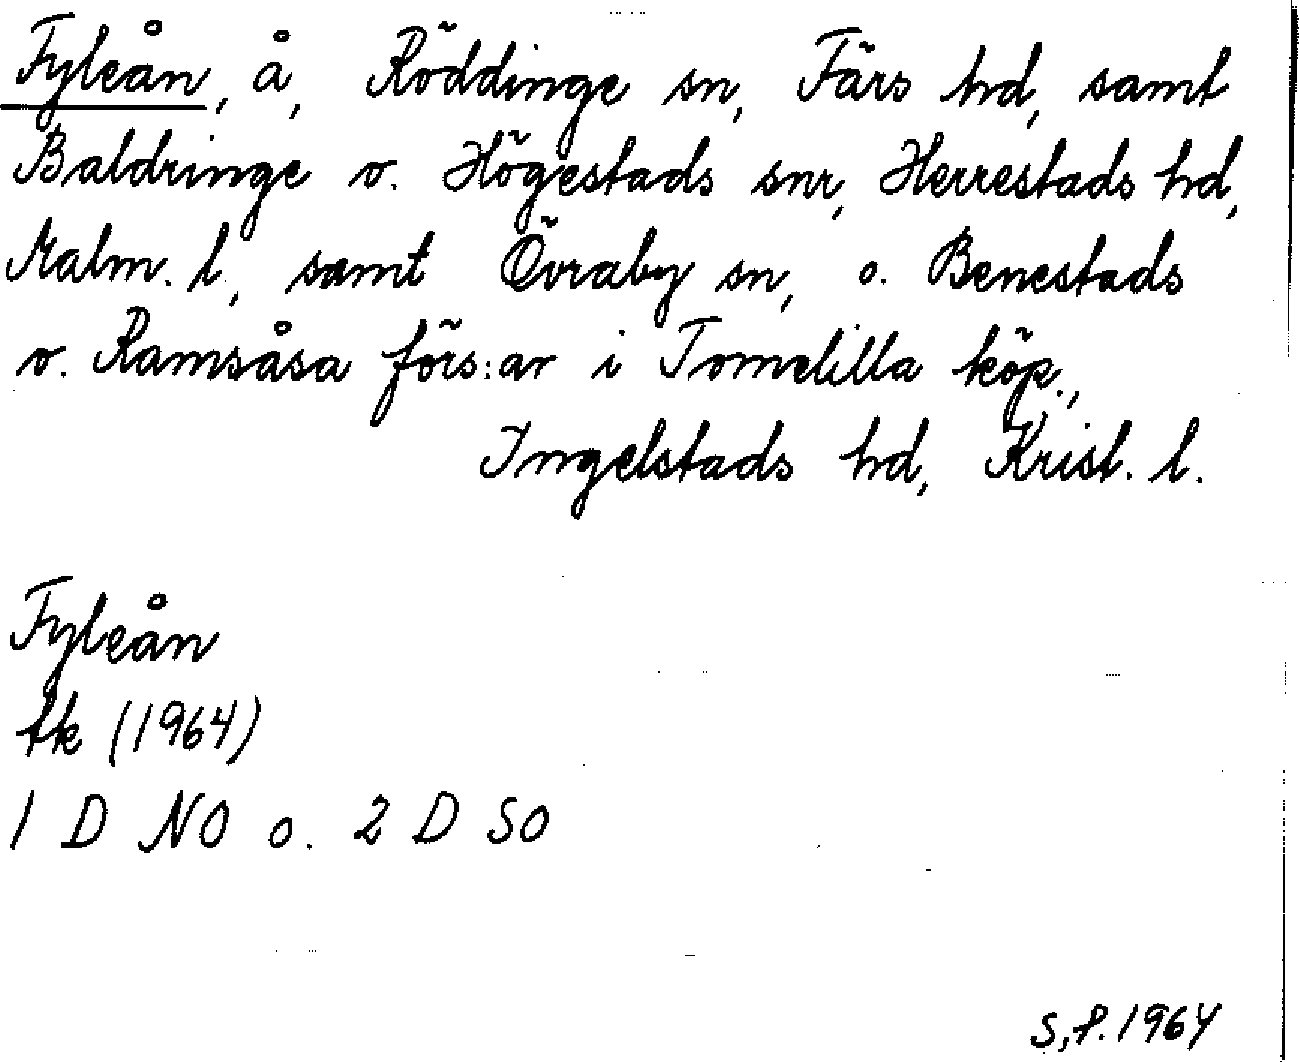 Fyleån, å, Röddinge sn, Färs hd, samt
Baldringe o. Högestads snr, Herrestads hd,
Malm. l., samt Övraby sn, o. Benestads
o. Ramsåsa förs:ar i Tomelilla köp.,
Ingelstads hd, Krist. l.
Fyleån
tk (1964)
1 D NO o. 2 D SO
S.P. 1964